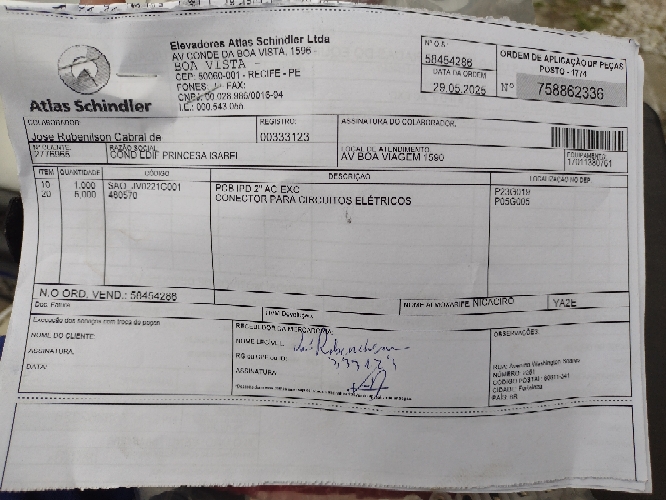 Atlas Schindler
Elevadores Atlas Schindler Ltda
AV CONDE DA BOA VISTA, 1596
BOA VISTA -
CEP: 50060-001 - RECIFE - PE
FONES: FAX:
CNPJ: 00.028.986/0016-04
I.E.: 000.543.055.
Nº O.S.
58454286
DATA DA ORDEM
29.05.2025
ORDEM DE APLICAÇÃO DE PEÇAS
POSTO - 17/4
Nº 758862336
COLABORADOR
Jose Rubenilson Cabral de
REGISTRO:
00333123
ASSINATURA DO COLABORADOR.
Nº CLIENTE:
RAZÃO SOCIAL
COND EDIF PRINCESA ISABEL
LOCAL DE ATENDIMENTO:
AV BOA VIAGEM 1590
EQUIPAMENTO:
ITEM QUANTIDADE CÓDIGO DESCRIÇÃO LOCALIZAÇÃO NO DEP.
10 1,000 SAO_JIV0221C001 PCB IPD 2" AC EXC P23G019
20 6,000 480570 CONECTOR PARA CIRCUITOS ELÉTRICOS P05G005
N.O ORD. VEND.: 58454286
NOME ALMOXARIFE: NICACIRO YA2E
Execução dos serviços com troca de peças
NOME DO CLIENTE:
ASSINATURA:
DATA:
RECEBEDOR DA MERCADORIA:
NOME LEGÍVEL:
ASSINATURA
OBSERVAÇÕES:
RUA: Avenida Washington Soares
CIDADE: Fortaleza
PAÍS: BR